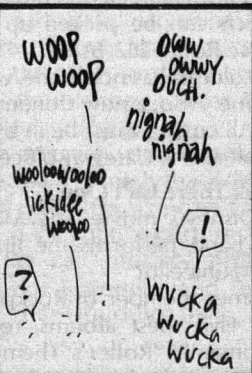 WOOP
WOOP
OWW
OWWY
OUCH.
nignah
nignah
wooloowooloo
lickidee
wooloo
!
?
wucka
wucka
wucka